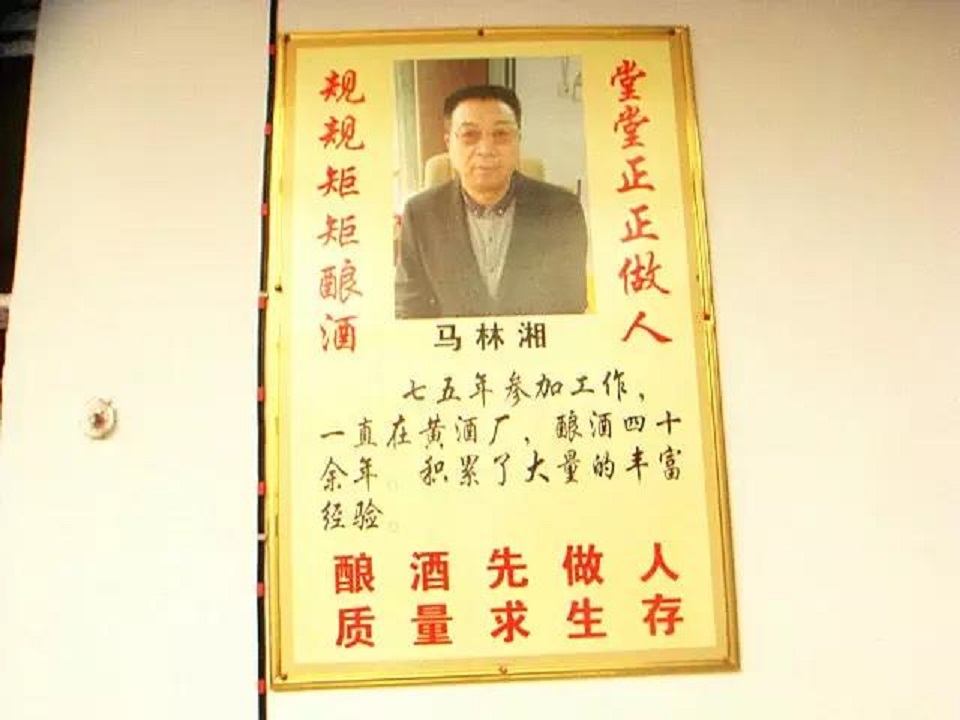 堂堂正正做人
规规矩矩酿酒
马林湘
七五年参加工作，
一直在黄酒厂，酿酒四十
余年。积累了大量的丰富
经验。
酿酒先做人
质量求生存